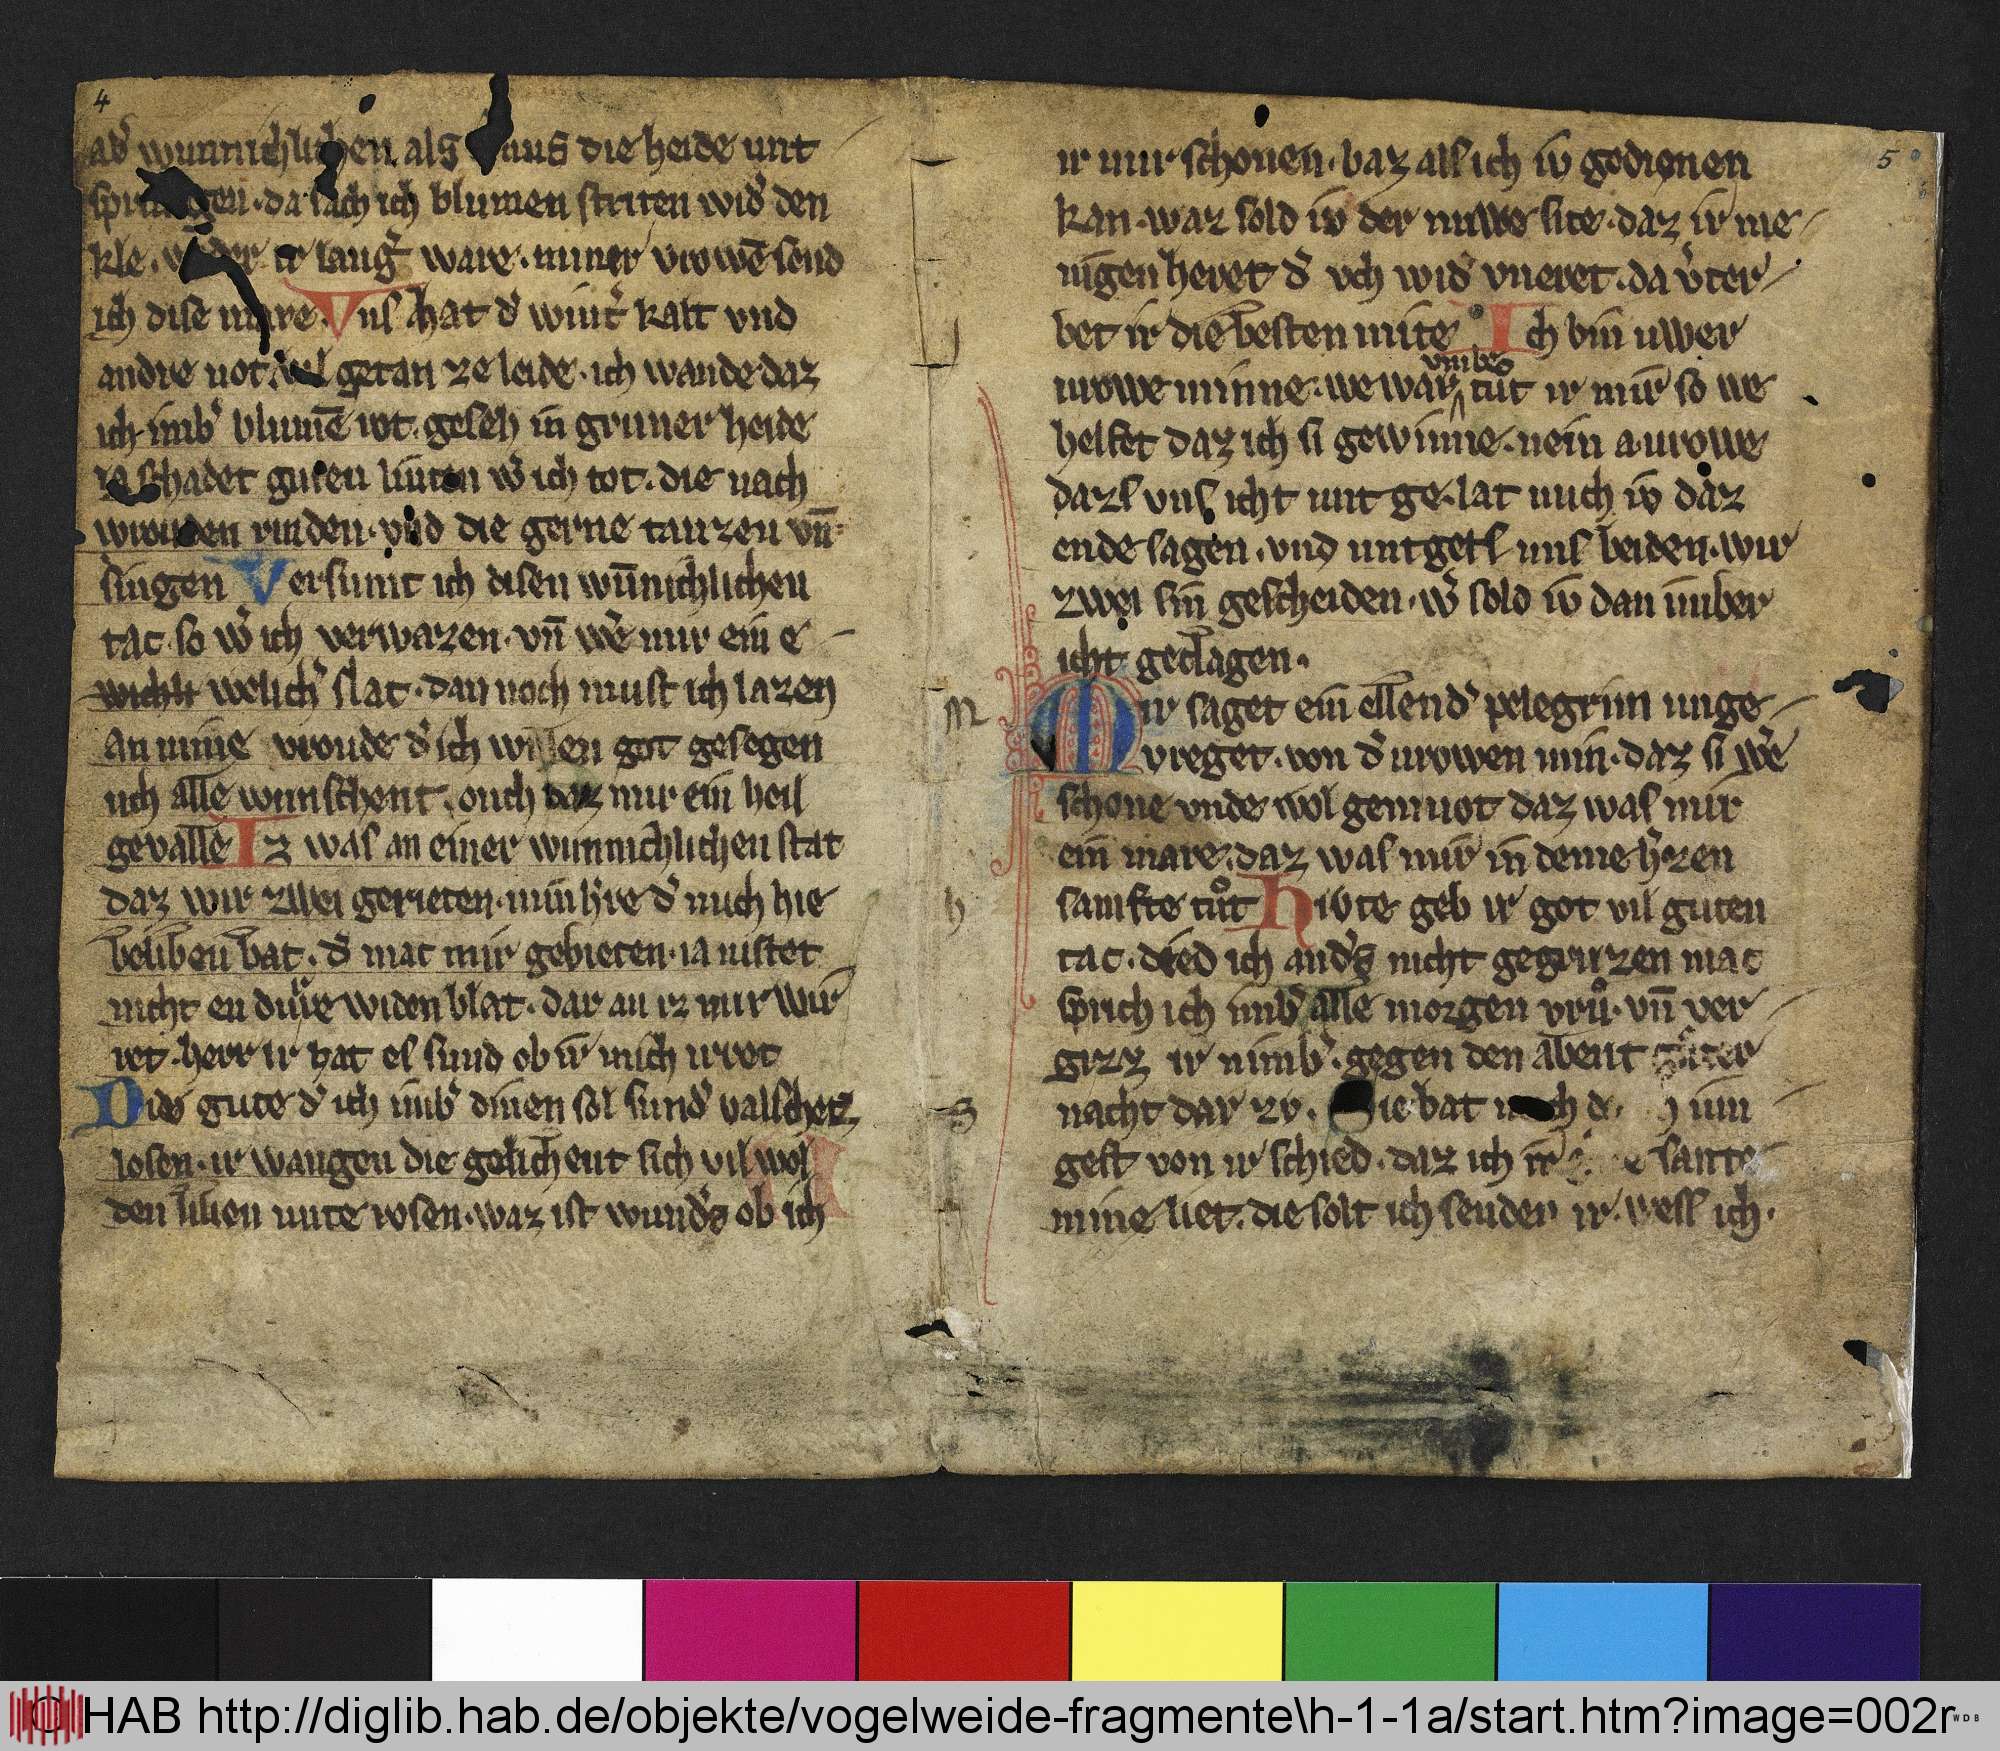 4
ab᷑ wunnichlichen als aus die heide unt
da sach ich blumen striten wid᷑ den
kle ir lang᷑ ware · miner vrowē send
ich dise mare · Vns hat d᷑ wint᷑ kalt vnd
andre not vil getan ze leide · ich wande daz
ich imb᷑ blumē rot · geseh in gruner heide
ia schadet guten luiten w᷑ ich tot · die nach
wrouden rinden · vnd die gerne tanzen vn̄
singen Versumt ich disen wūnichlichen
tac · so w᷑ ich verwazen · vn̄ we᷑ mir ein e
wichli welich᷑ slat · dan noch must ich lazen
an mine vroude d᷑ ich wilen got gesegen
uch alle wunschent · ouch daz mir ein heil
gevalle Iz was an einer wunnichlichen stat
daz wir zwei gerieten · min h᷑re d᷑ mich hie
beliben bat · d᷑ mac mir gebieten · ia nistet
nicht en diure widen blat · dar an iz mir wir
ret · herr ir hat es sund ob ir mich irret
Div gute d᷑ ich imb᷑ dinen sol sund᷑ valschez
losen · ir wangen die gelichent sich vil wol
den lilien unte rosen · waz ist wund᷑s ob ich
5
ir mir schonen · baz als ich iv gedienen
kan · waz sold iv der niwe site · daz ir nie
nigen heret d᷑ vch wid᷑ vneret · da v᷑ter
bet ir die besten mite Ich bin uwer
vmbe
vrowe minne · we war tut ir mir so we
helfet daz ich si gewinne · nein a vrowe
dazs vns icht mt ge · lat mich iv daz
ende sagen · vnd mtgets uns beiden · wir
zwei sin gescheiden · w᷑ sold iv dan imber
icht geclagen ·
M
Mir saget ein ellend᷑ pelegrim unge
vreget · von d᷑ vrowen min · daz si we᷑
schone vnde wol gemuot daz was mir
ein mare · daz was mir in deme h᷑zen
h
samfte tuͦt Hivte geb ir got vil guten
tac · died ich and᷑s nicht gegruzen mac
sprich ich imb᷑ alle morgen vruͦ · vn̄ ver
gizz ir nimb᷑ · gegen den abent guͦter
S
nacht dar zv · Sie bat mich min
gest von ir schied · daz ich ir sante
mine liet · die solt ich senden ir · wess ich ·
© HAB http://diglib.hab.de/objekte/vogelweide-fragmente\h-1-1a/start.htm?image=002r
WDB